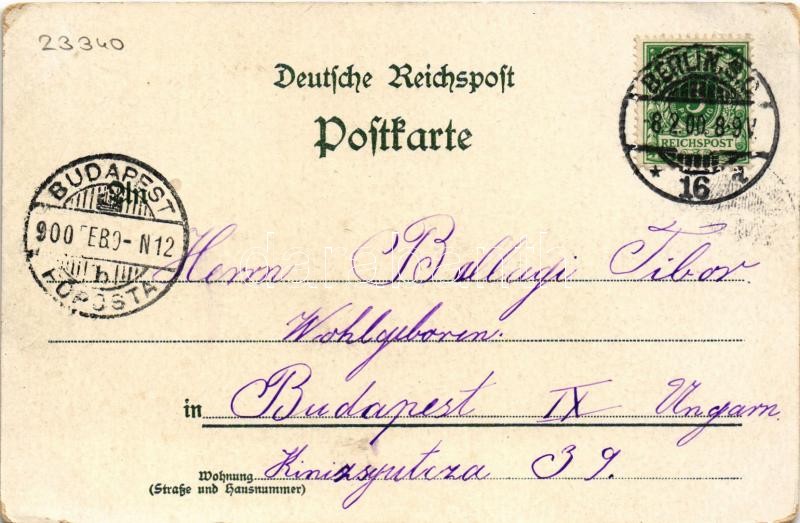 23340
Deutsche Reichspost
Postkarte
BERLIN
-8.2.00. 8-9V.
16 a
REICHSPOST
5
BUDAPEST
900 FEB 9- N12
b
FŐPOSTA
An
Herrn Ballagi Tibor
Wohlgeboren.
in Budapest IX Ungarn
Wohnung
(Straße und Hausnummer)
Kinizsyutcza 39.